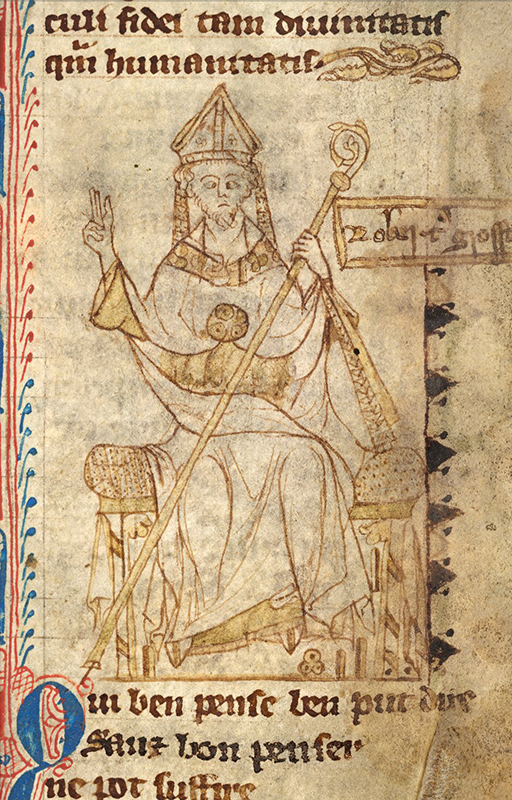 culi fidei tam diuinitatis
qm̄ humanitatis
Robert͛ gross
Qui ben pense ben put dire
Sanz bon penser
ne pot suffire